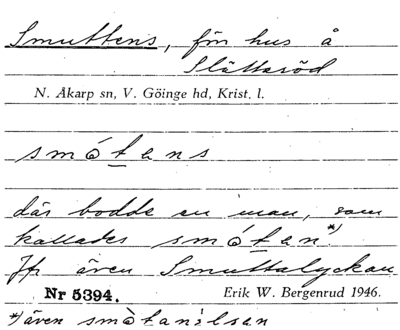 Smuttens, förr hus å
Slättaröd
N. Åkarp sn, V. Göinge hd, Krist. l.
smótans
där bodde en man, som
kallades smótan*)
Jfr även Smuttalyckan
Nr 5394. Erik W. Bergenrud 1946.
*) även smòtanilsen